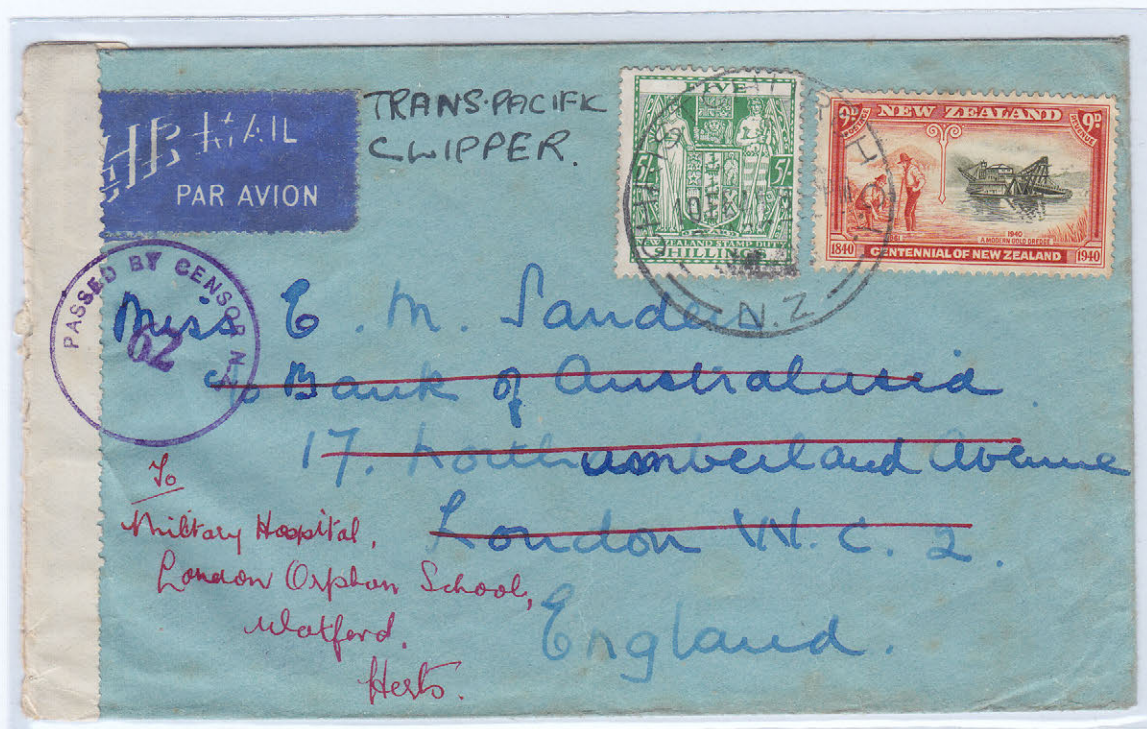 AIR MAIL
PAR AVION
TRANS-PACIFIC
CLIPPER.
FIVE
5/-
5/-
NEW ZEALAND STAMP DUTY
SHILLINGS
9D
NEW ZEALAND
9D
POSTAGE
REVENUE
1940
A MODERN GOLD DREDGE
1840
CENTENNIAL OF NEW ZEALAND
1940
N.Z
PASSED BY CENSOR N.Z
62
Miss E. M. Sanders
c/o Bank of Australasia
17. Northumberland Avenue
London W.C. 2.
England.
To
Military Hospital,
London Orphan School,
Watford.
Herts.